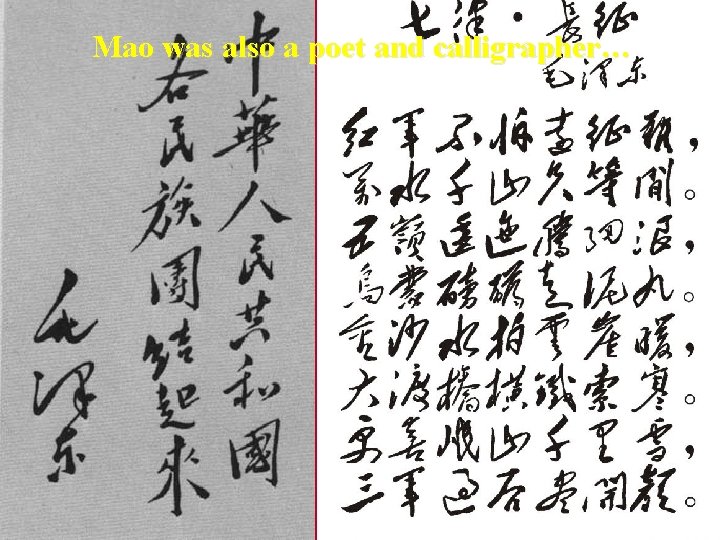 Mao was also a poet and calligrapher…
中華人民共和國
各民族團結起來
毛澤东
七律·長征
毛澤东
紅軍不怕遠征難，
萬水千山只等閒。
五嶺逶迤騰細浪，
烏蒙磅礴走泥丸。
金沙水拍雲崖暖，
大渡橋橫鐵索寒。
更喜岷山千里雪，
三軍過后盡開顏。